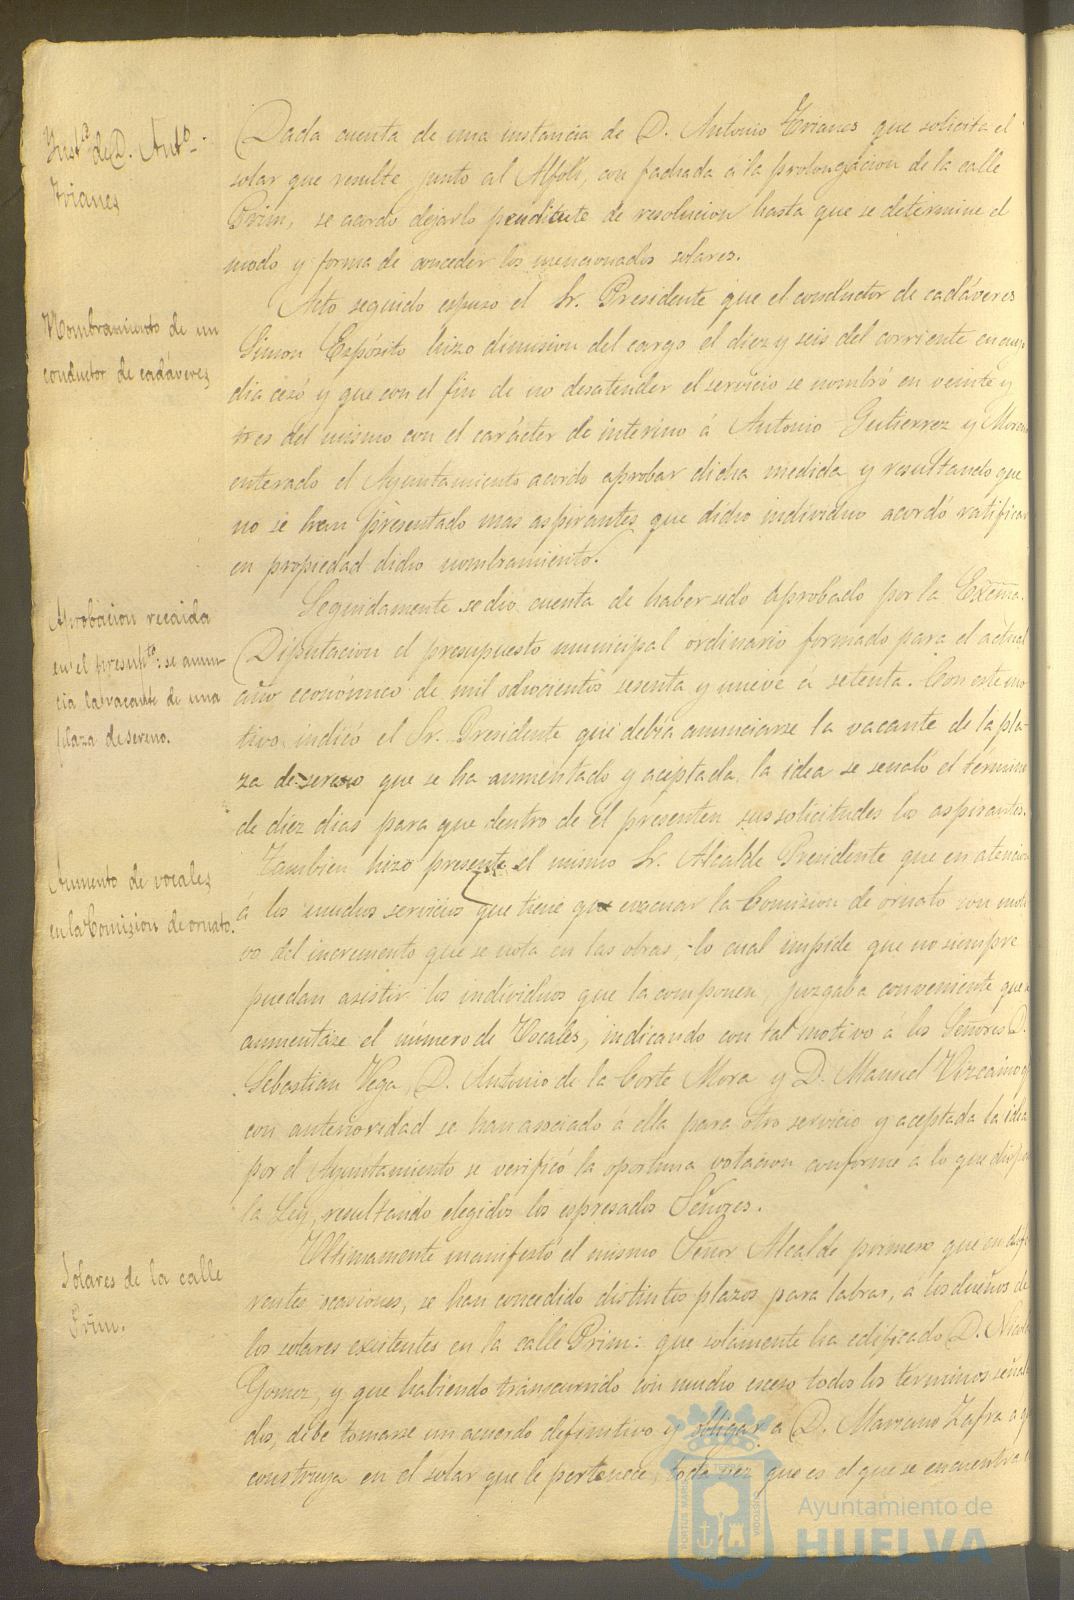 Inst.ª de D. Ant.º
Trianes
Dada cuenta de una instancia de D. Antonio Trianes que solicita el
solar que resulte junto al Alfolí, con fachada á la prolongacion de la calle
Prim, se acordo dejarlo pendiente de resolucion hasta que se determine el
modo y forma de conceder los mencionados solares.
Nombramiento de un
conductor de cadáveres
Acto seguido espuso el Sr. Presidente que el conductor de cadáveres
Simon Expósito hizo dimision del cargo el diez y seis del corriente en cuyo
dia cesó y que con el fin de no desatender el servicio se nombró en veinte y
tres del mismo con el carácter de interino á Antonio Gutierrez y Moreno
enterado el Ayuntamiento acordo aprobar dicha medida y resultando que
no se han presentado mas aspirantes que dicho individuo acordó ratificar
en propiedad dicho nombramiento.
Aprobacion recaida
en el presup.to: se anun-
cia la vacante de una
plaza de sereno.
Seguidamente se dio cuenta de haber sido aprobado por la Excma.
Diputacion el presupuesto municipal ordinario formado para el actual
año económico de mil ochocientos sesenta y nueve a setenta. Con este mo
tivo indicó el Sr. Presidente que debia anunciarse la vacante de la pla-
za de sereno que se ha aumentado y aceptada la idea se señaló el término
de diez dias para que dentro de él presenten sus solicitudes los aspirantes.
Aumento de vocales
en la Comision de ornato.
Tambien hizo presente el mismo Sr. Alcalde Presidente que en atencion
á los muchos servicios que tiene que evacuar la Comision de ornato con moti
vo del incremento que se nota en las obras, lo cual impide que no siempre
puedan asistir los individuos que la componen, juzgaba conveniente que se
aumentase el número de Vocales, indicando con tal motivo á los Señores D.
Sebastian Vega, D. Antonio de la Corte Mora y D. Manuel Vizcaino q
con anterioridad se han asociado á ella para otro servicio y aceptada la idea
por el Ayuntamiento se verificó la oportuna votacion conforme a lo que dispo
la Ley, resultando elegidos los espresados Señores.
Solares de la calle
Prim.
Ultimamente manifestó el mismo Señor Alcalde primero que en dife
rentes ocasiones, se han concedido distintos plazos para labrar, a los dueños de
los solares existentes en la calle Prim: que solamente ha edificado D. Nicolas
Gomez, y que habiendo transcurrido con mucho esceso todos los términos señala
dos, debe tomarse un acuerdo definitivo y obligar á D. Mariano Zafra a q
construya en el solar que le pertenece, toda vez que es el que se encuentra
PORTUS MARIS ET TERRAE CUSTODIA
Ayuntamiento de
HUELVA